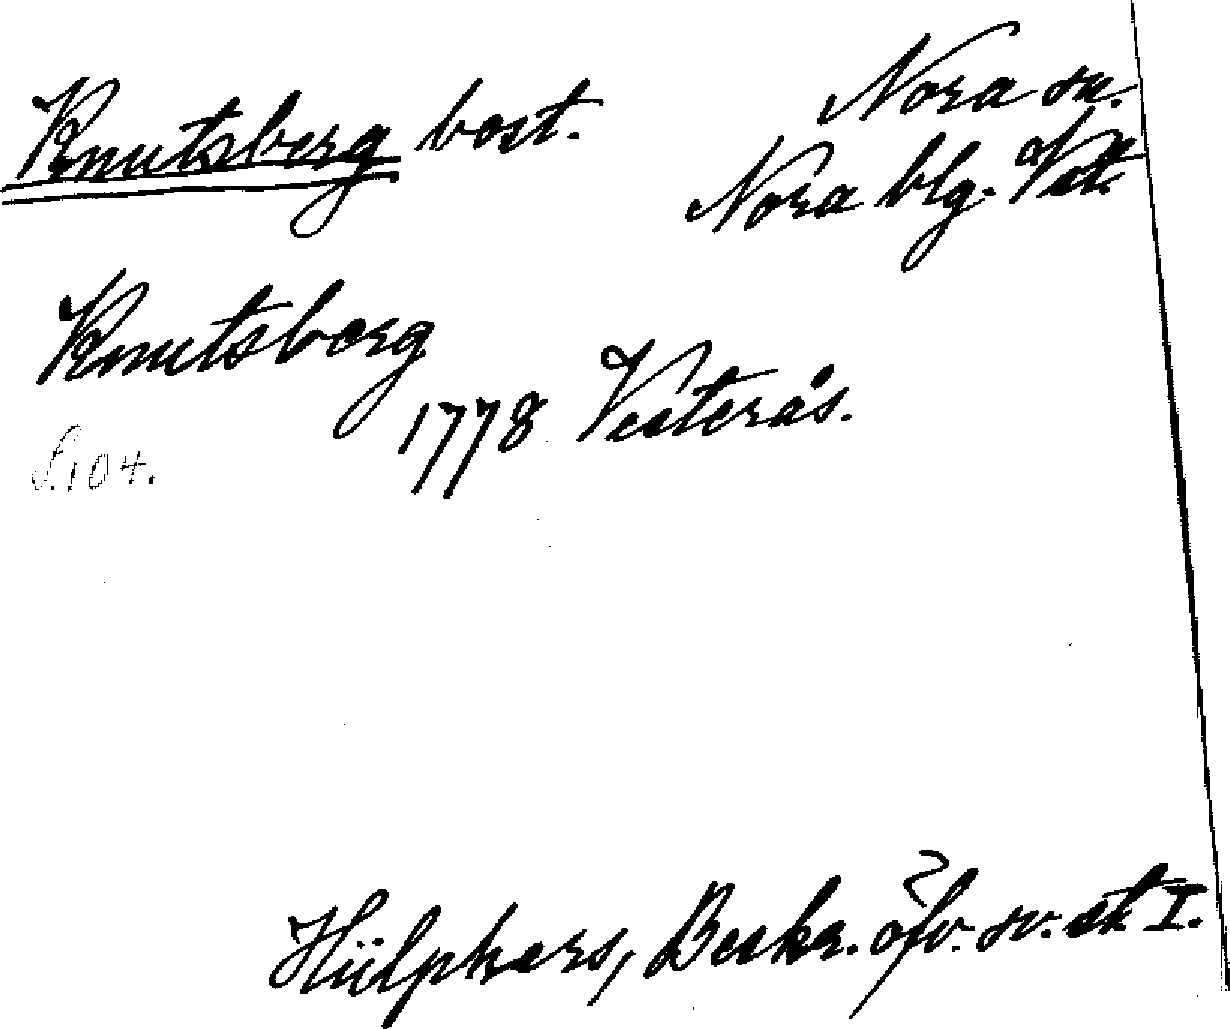 Knutsberg bost.
Nora sn.
Nora blg. Vstm.
Knutsberg
1778 Vesterås.
S. 104.
Hülphers, Beskr. öfv. sv. st. I.